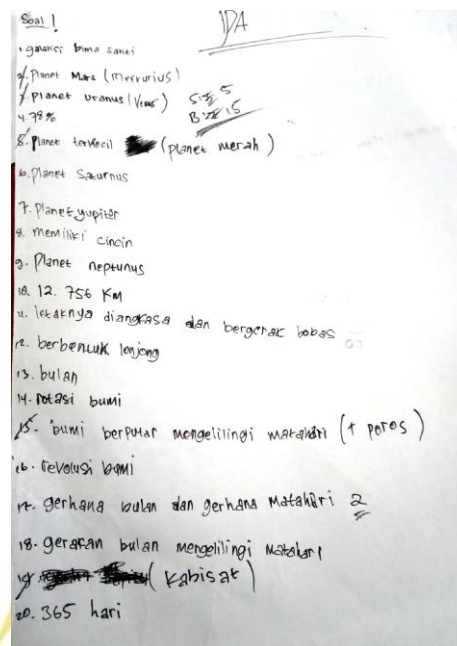 Soal !
IDA
1. galaksi bima sakti
2. Planet Mars (merkurius)
3. planet uranus (Venus)
S = 5
B = 15
4. 78%
5. Planet terkecil (planet merah)
6. Planet Saturnus
7. Planet yupiter
8. memiliki cincin
9. Planet neptunus
10. 12. 756 KM
11. letaknya diangkasa dan bergerak bebas
12. berbentuk lonjong
13. bulan
14. rotasi bumi
15. bumi berputar mengelilingi matahari (+ poros)
16. revolusi bumi
17. gerhana bulan dan gerhana Matahari 2
18. gerakan bulan mengelilingi Matahari
19. (kabisat)
20. 365 hari